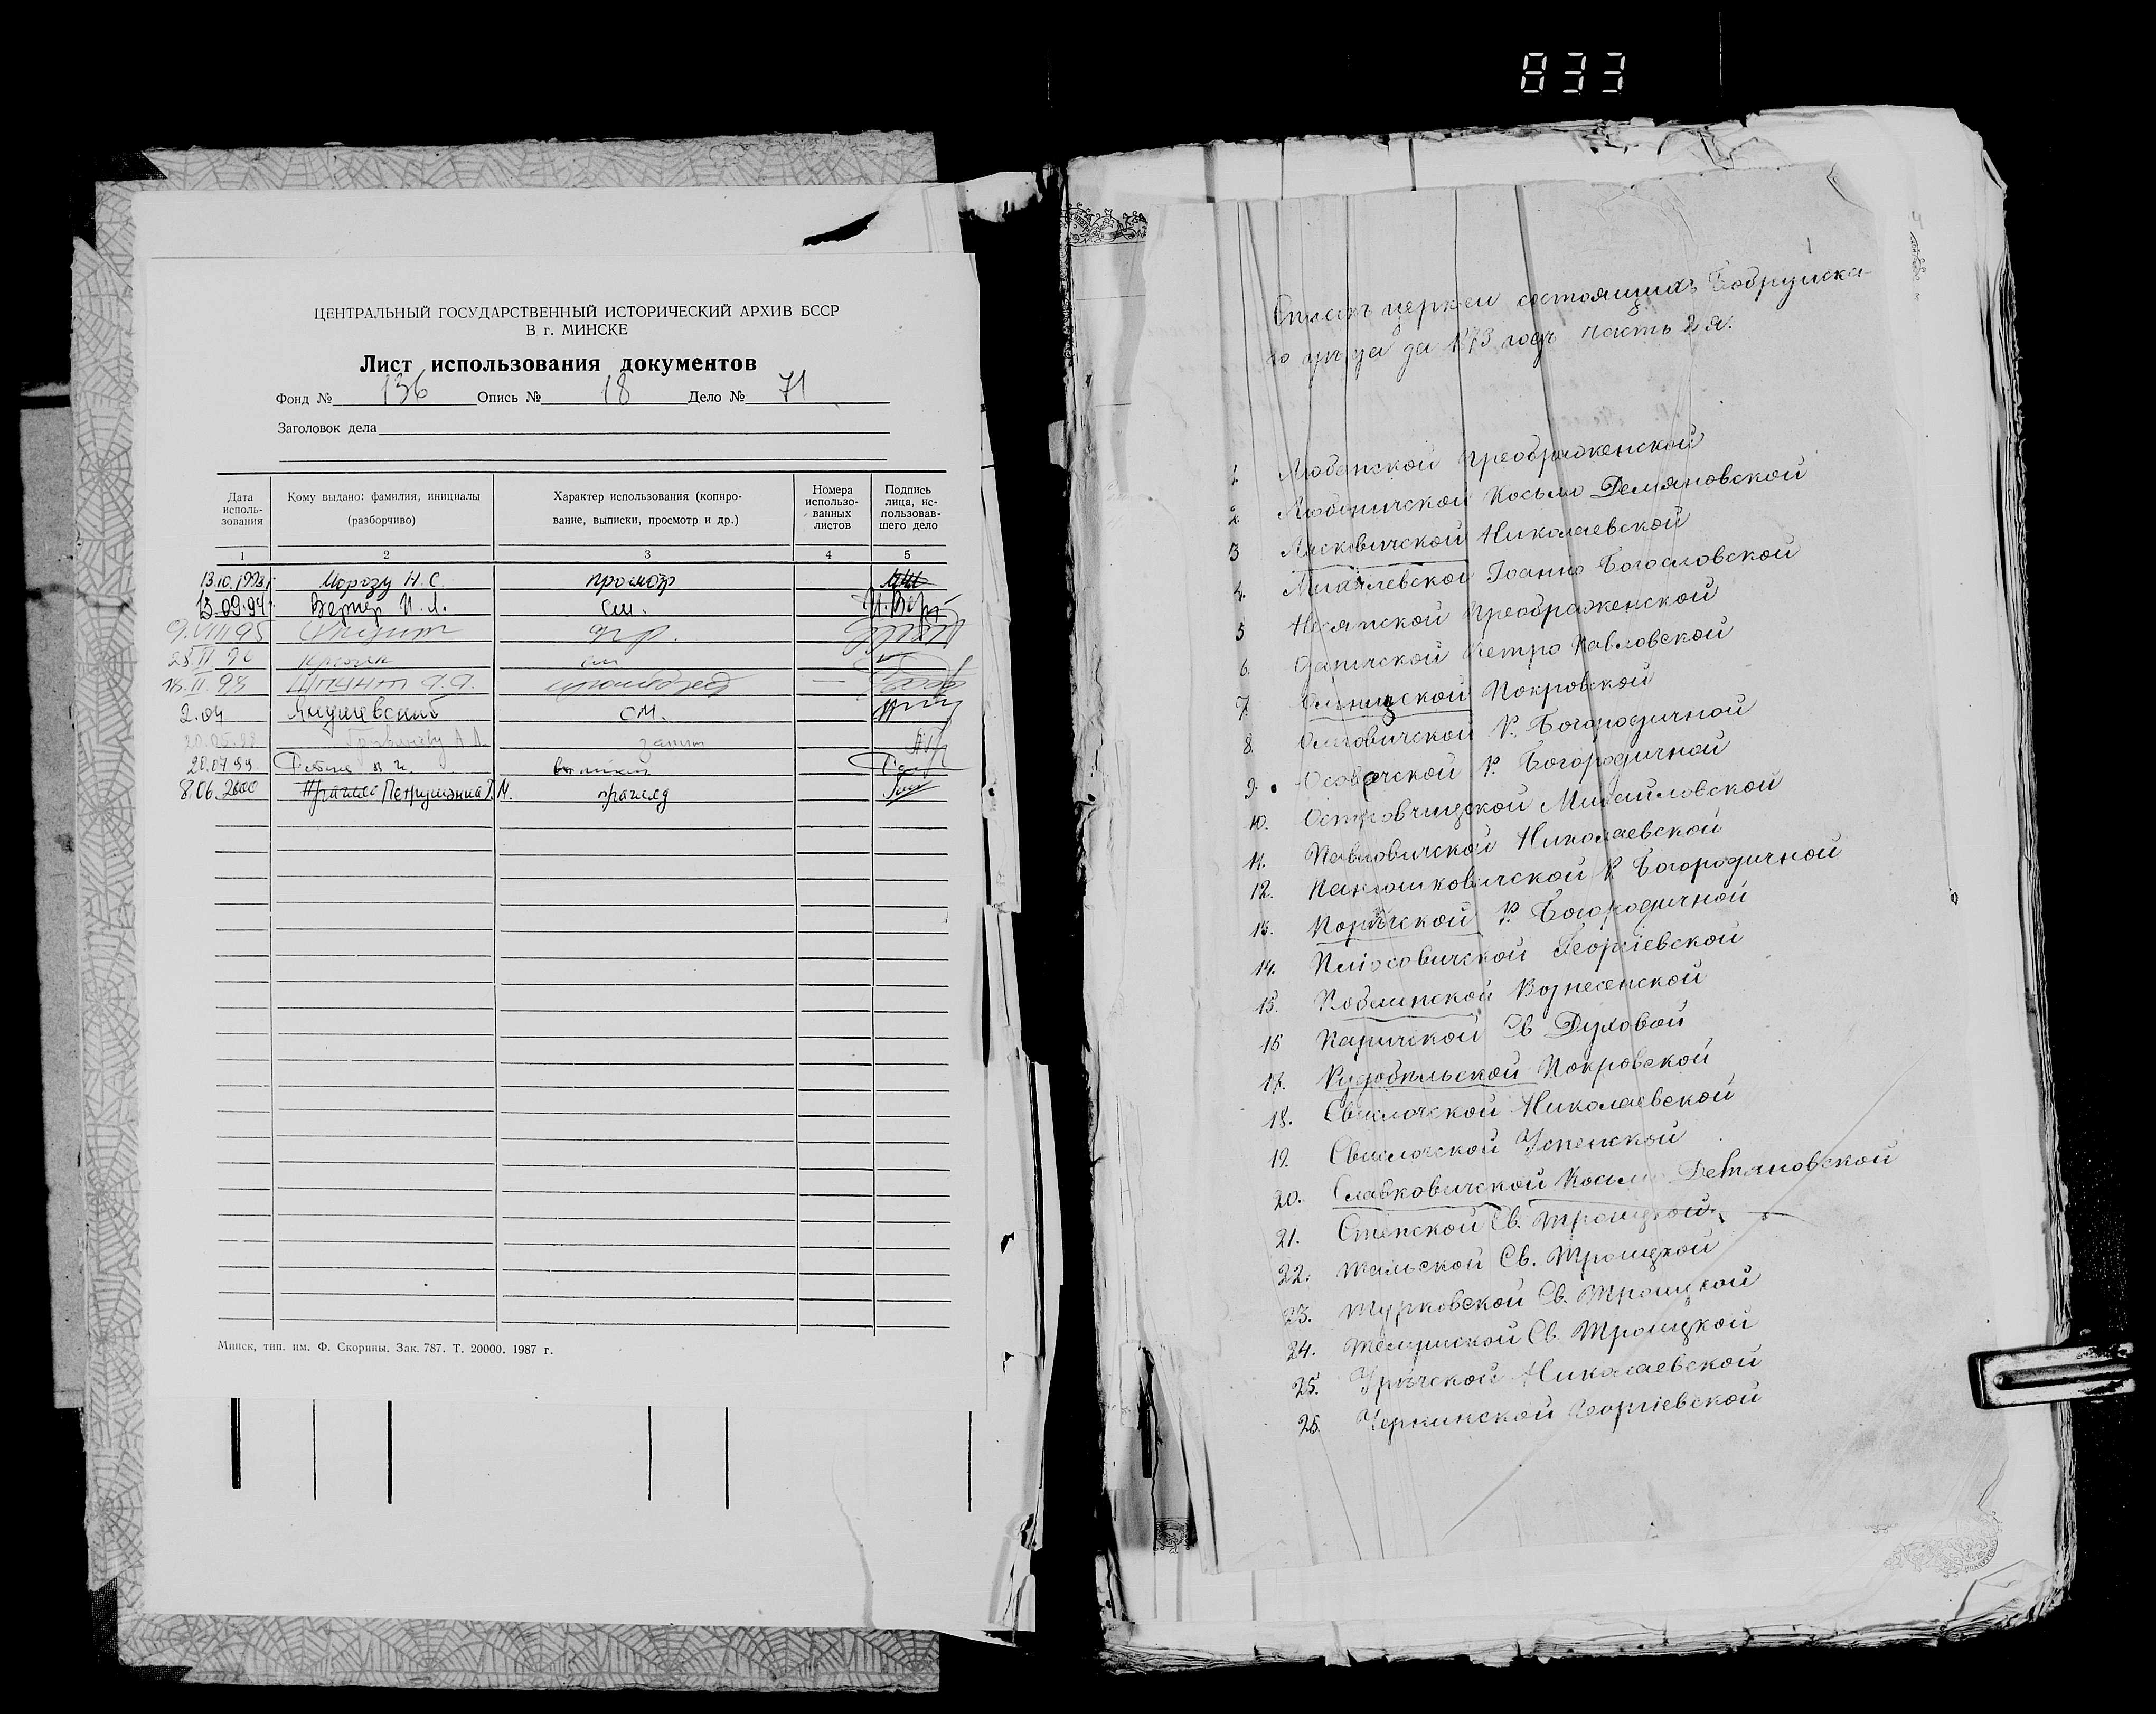 833
ЦЕНТРАЛЬНЫЙ ГОСУДАРСТВЕННЫЙ ИСТОРИЧЕСКИЙ АРХИВ БССР
В г. МИНСКЕ
Лист использования документов
Фонд № 136 Опись № 18 Дело № 71
Заголовок дела
Дата исполь-зования
Кому выдано: фамилия, инициалы (разборчиво)
Характер использования (копиро-вание, выписки, просмотр и др.)
Номера использо-ванных листов
Подпись лица, ис-пользовав-шего дело
1 2 3 4 5
13.10.1993 Морозу Н.С. просмотр
13.09.94 Вернер И.Л. см.
9.VIII 95
25.II.96 см
18.II.98
2.04 Янушевский см.
20.05.98
20.07.99
8.06.2000 прагляд
Минск, тип. им. Ф. Скорины. Зак. 787. Т. 20000. 1987 г.
1
Списокъ церквей состоящихъ Бобруйска-
го уезда за 1873 годъ часть 2я.
1. Любанской Преображенской
2. Любоничской Косьмо Демяновской
3 Лясковичской Николаевской
4. Іоанно Богословской
5 Преображенской
6. Петро Павловской
7. Покровской
8. Р. Богородичной
9. Р. Богородичной
10. Островчицской Михайловской
11. Павловичской Николаевской
12. Панюшковичской Р Богородичной
13. Порѣчской Р. Богородичной
14. Георгіевской
15. Вознесенской
16 Паричской Св Духовой
17. Рудобѣльской Покровской
18. Свислочской Николаевской
19. Свислочской Успенской
20. Славковичской Косьмо Демяновской
21. Степской Св. Троицкой
22. Тальской Св. Троицкой
23. Турковской Св. Троицкой
24. Св. Троицкой
25. Урѣчской Николаевской
26. Георгіевской